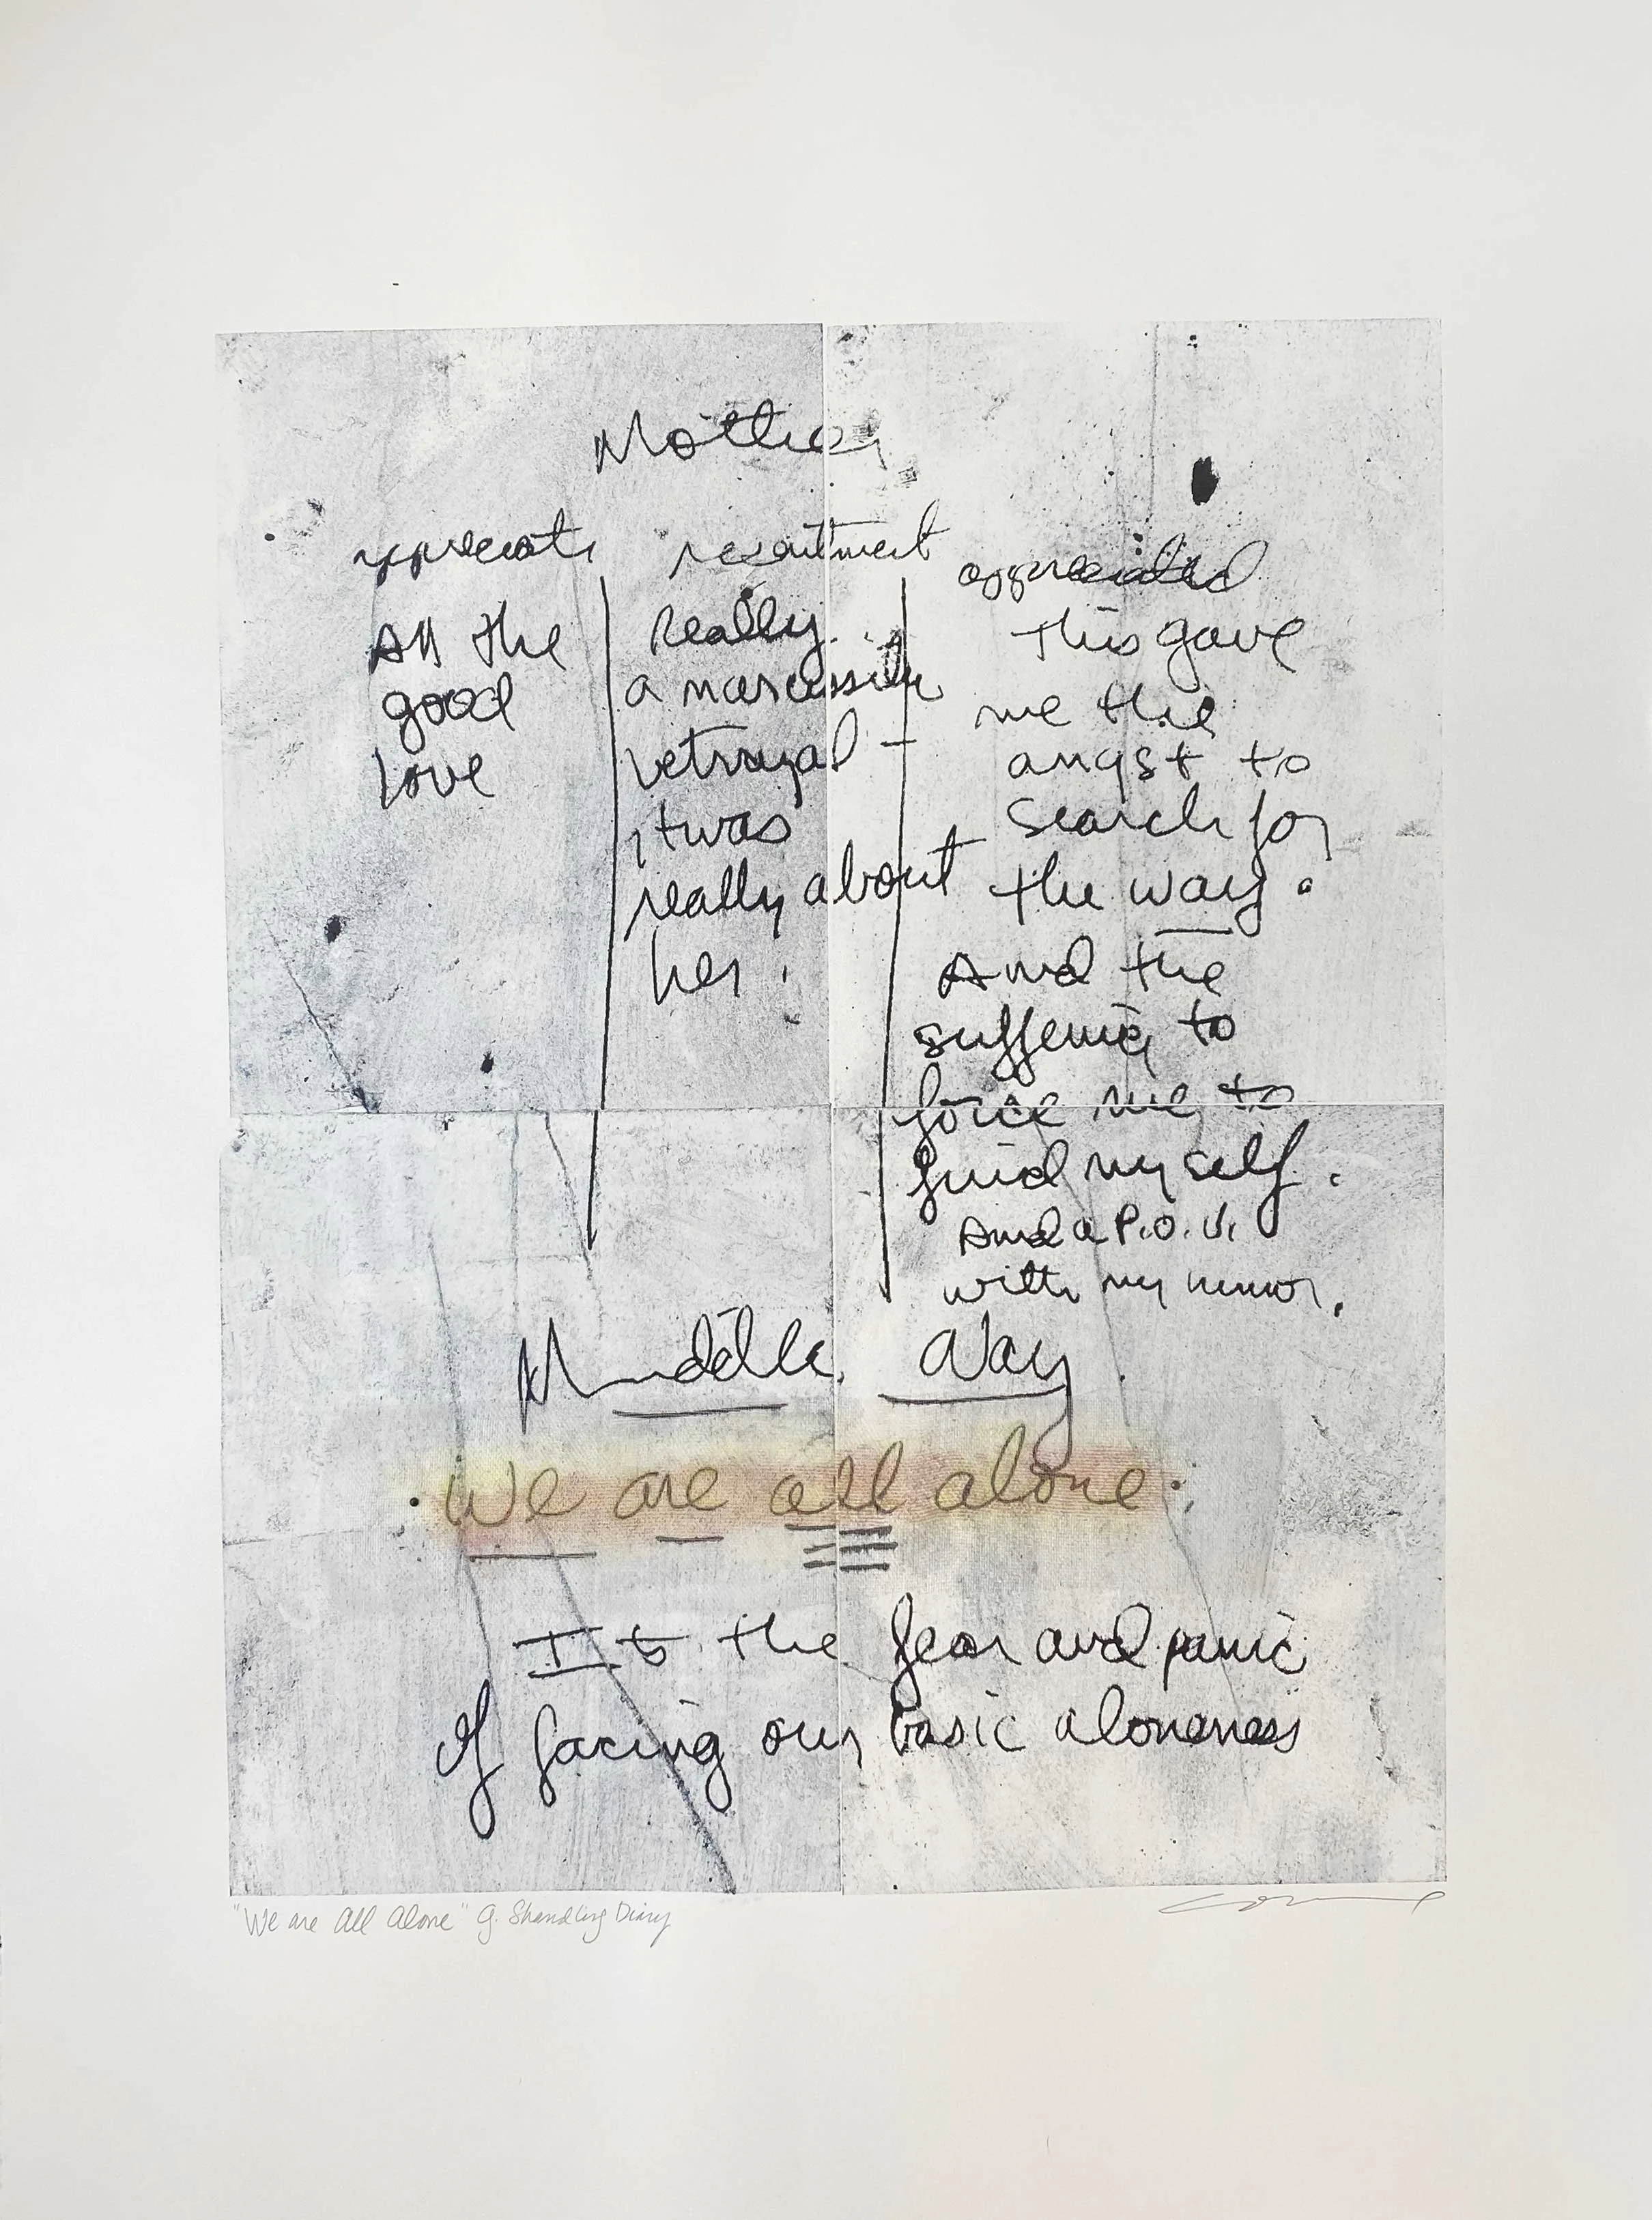 Mother
appreciate
All the
good
love
resentment
Really
a narcissistic
betrayal –
it was
really about
her.
appreciated
This gave
me the
angst to
search for
the way.
And the
suffering to
force me to
find myself.
And a P.O.V.
with my humor.
Middle Way
We are all alone.
It's the fear and panic
of facing our basic aloneness
"We are All Alone" G. Shandling Diary